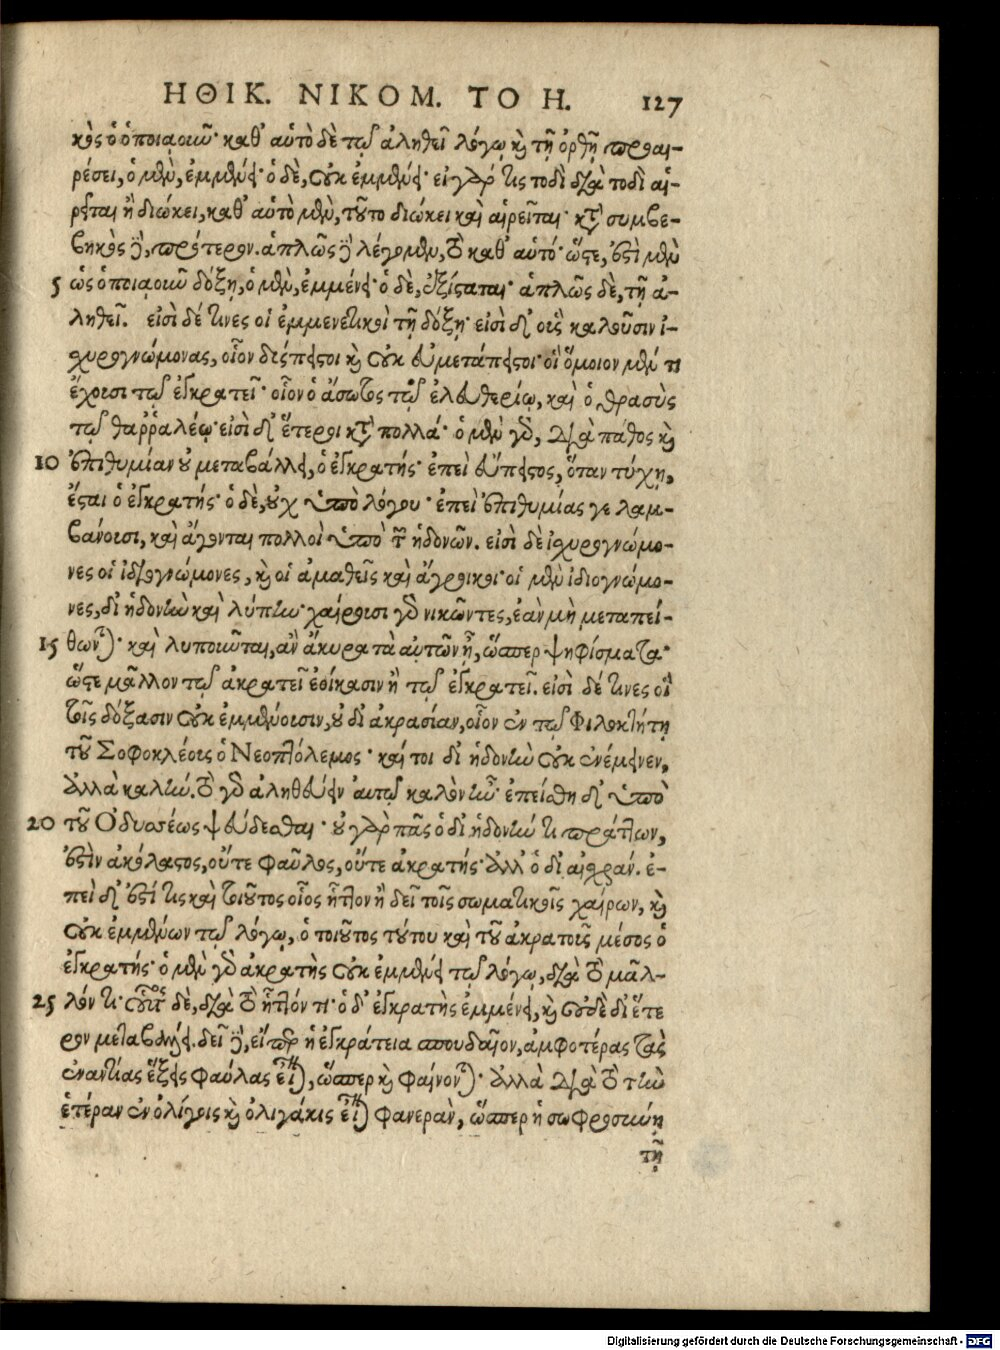 ΗΘΙΚ. ΝΙΚΟΜ. ΤΟ Η. 127
κὸς ὁ ὁποιαοιοῦν· καθ' αὑτὸ δὲ τῷ ἀληθεῖ λόγῳ καὶ τῇ ὀρθῇ προαι-
ρέσει, ὁ μὲν, ἐμμένει· ὁ δὲ, οὐκ ἐμμένει· εἰ γάρ τις τοδὶ διὰ τοδὶ αἱ-
ρεῖται ἢ διώκει, καθ' αὑτὸ μὲν, τοῦτο διώκει καὶ αἱρεῖται· κατὰ συμβε-
βηκὸς δὲ, πρότερον. ἁπλῶς δὲ λέγομεν, τὸ καθ' αὑτό· ὥστε, ἔστι μὲν
5 ὡς ὁποιαοιοῦν δόξῃ, ὁ μὲν, ἐμμένει· ὁ δὲ, ἐξίσταται· ἁπλῶς δὲ, τῇ ἀ-
ληθεῖ. εἰσὶ δέ τινες οἳ ἐμμενετικοὶ τῇ δόξῃ· εἰσὶ δ' οὓς καλοῦσιν ἰ-
χυρογνώμονας, οἷον δύσπειστοι καὶ οὐκ εὐμετάπειστοι· οἳ ὅμοιον μέν τι
ἔχουσι τῷ ἐγκρατεῖ· οἷον ὁ ἄσωτος τῷ ἐλευθερίῳ, καὶ ὁ θρασὺς
τῷ θαῤῥαλέῳ· εἰσὶ δ' ἕτεροι κατὰ πολλά· ὁ μὲν γὰρ, διὰ πάθος καὶ
10 ἐπιθυμίαν οὐ μεταβάλλει, ὁ ἐγκρατής· ἐπεὶ εὔπειστος, ὅταν τύχῃ,
ἔσται ὁ ἐγκρατής· ὁ δὲ, οὐχ ὑπὸ λόγου· ἐπεὶ ἐπιθυμίας γε λαμ-
βάνουσι, καὶ ἄγονται πολλοὶ ὑπὸ τῶν ἡδονῶν. εἰσὶ δὲ ἰχυρογνώμο-
νες οἱ ἰδιογνώμονες, καὶ οἱ ἀμαθεῖς καὶ ἄγροικοι· οἱ μὲν ἰδιογνώμο-
νες, δι' ἡδονὴν καὶ λύπην· χαίρουσι γὰρ νικῶντες, ἐὰν μὴ μεταπεί-
15 θωνται· καὶ λυποῦνται, ἂν ἄκυρα τὰ αὐτῶν ᾖ, ὥσπερ ψηφίσματα·
ὥστε μᾶλλον τῷ ἀκρατεῖ ἐοίκασιν ἢ τῷ ἐγκρατεῖ. εἰσὶ δέ τινες οἳ
τοῖς δόξασιν οὐκ ἐμμένουσιν, οὐ δι' ἀκρασίαν, οἷον ἐν τῷ Φιλοκτήτῃ
τοῦ Σοφοκλέους ὁ Νεοπτόλεμος· καί τοι δι' ἡδονὴν οὐκ ἐνέμεινεν,
ἀλλὰ καλήν. τὸ γὰρ ἀληθεύειν αὐτῷ καλὸν ἦν· ἐπείσθη δ' ὑπὸ
20 τοῦ Ὀδυσσέως ψεύδεσθαι· οὐ γὰρ πᾶς ὁ δι' ἡδονήν τι πράττων,
ἐστὶν ἀκόλαστος, οὔτε φαῦλος, οὔτε ἀκρατής· ἀλλ' ὁ δι' αἰσχράν. ἐ-
πεὶ δ' ἔστι τις καὶ τοιοῦτος οἷος ἧττον ἢ δεῖ τοῖς σωματικοῖς χαίρων, καὶ
οὐκ ἐμμένων τῷ λόγῳ, ὁ τοιοῦτος τούτου καὶ τοῦ ἀκρατοῦς μέσος ὁ
ἐγκρατής· ὁ μὲν γὰρ ἀκρατὴς οὐκ ἐμμένει τῷ λόγῳ, διὰ τὸ μᾶλ-
25 λόν τι· οὗτος δὲ, διὰ τὸ ἧττόν τι· ὁ δ' ἐγκρατὴς ἐμμένει, καὶ οὐδὲ δι' ἕτε
ρον μεταβάλλει. δεῖ δὲ, εἴπερ ἡ ἐγκράτεια σπουδαῖον, ἀμφοτέρας τὰς
ἐναντίας ἕξεις φαύλας εἶναι, ὥσπερ καὶ φαίνονται· ἀλλὰ διὰ τὸ τὴν
ἑτέραν ἐν ὀλίγοις καὶ ὀλιγάκις εἶναι φανερὰν, ὥσπερ ἡ σωφροσύνη
τῇ
Digitalisierung gefördert durch die Deutsche Forschungsgemeinschaft - DFG